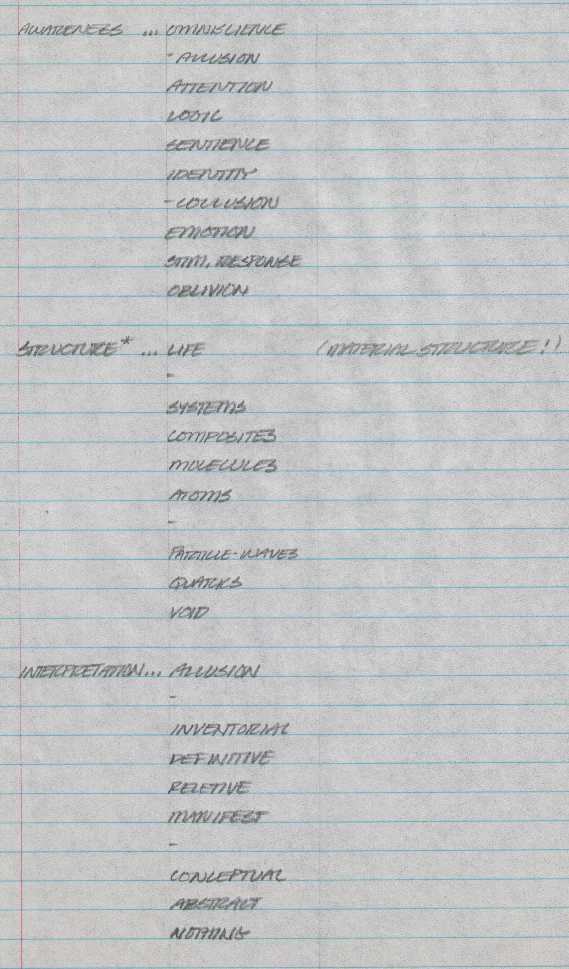 AWARENESS ... OMNISCIENCE
- ALLUSION
ATTENTION
LOGIC
SENTIENCE
IDENTITY
- COLLUSION
EMOTION
STIM. RESPONSE
OBLIVION
STRUCTURE* ... LIFE (MATERIAL STRUCTURE!)
-
SYSTEMS
COMPOSITES
MOLECULES
ATOMS
-
PARTICLE-WAVES
QUARKS
VOID
INTERPRETATION... ALLUSION
-
INVENTORIAL
DEFINITIVE
RELETIVE
MANIFEST
-
CONCEPTUAL
ABSTRACT
NOTHING